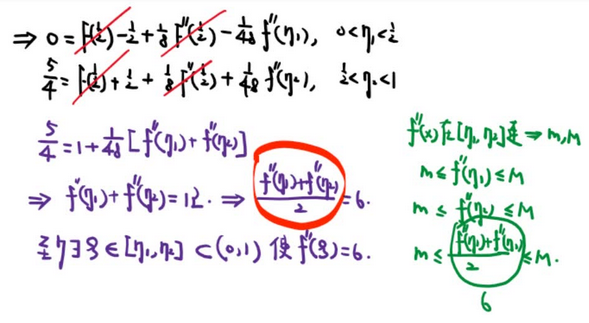 ⇒ 0 = f(½) - ½ + ⅛ f''(½) - 1/48 f'''(η₁), 0<η₁<½
5/4 = f(½) + ½ + ⅛ f''(½) + 1/48 f'''(η₂), ½<η₂<1
5/4 = 1 + 1/48 [f'''(η₁) + f'''(η₂)]
⇒ f'''(η₁) + f'''(η₂) = 12. ⇒ (f'''(η₁) + f'''(η₂))/2 = 6.
至少∃ξ ∈ [η₁, η₂] ⊂ (0,1) 使 f'''(ξ) = 6.
f'''(x)在[η₁, η₂]连 ⇒ m, M
m ≤ f'''(η₁) ≤ M
m ≤ f'''(η₂) ≤ M
m ≤ (f'''(η₁) + f'''(η₂))/2 ≤ M.
6